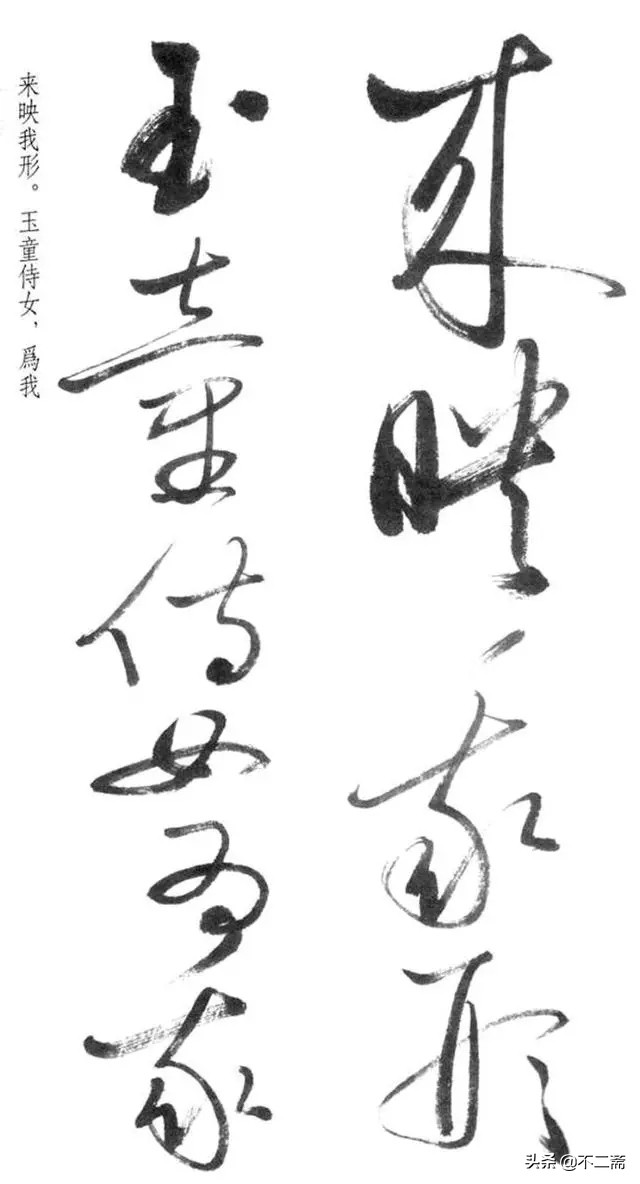 来映我形
玉童侍女為我
来映我形。玉童侍女，爲我
头条 @不二斋